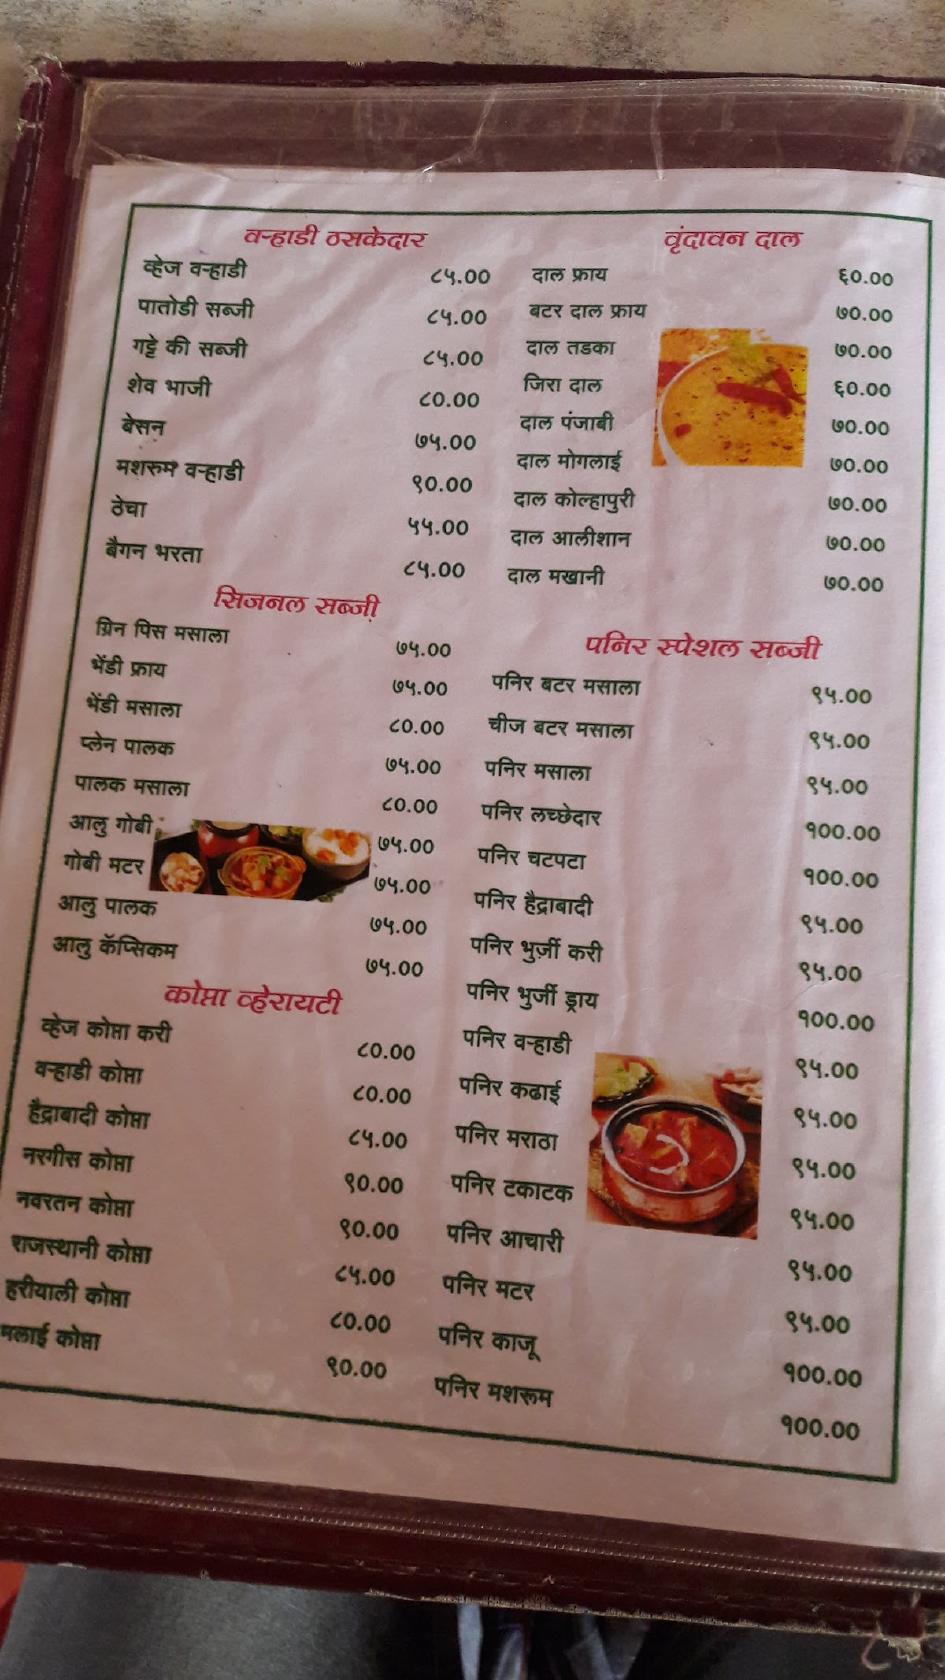 वऱ्हाडी ठसकेदार
व्हेज वऱ्हाडी ८५.00
पातोडी सब्जी ८५.00
गट्टे की सब्जी ८५.00
शेव भाजी ८०.00
बेसन ७५.00
मशरुम वऱ्हाडी ९०.00
ठेचा ५५.00
बैगन भरता ८५.00
सिजनल सब्जी
ग्रिन पिस मसाला ७५.00
भेंडी फ्राय ७५.00
भेंडी मसाला ८०.00
प्लेन पालक ७५.00
पालक मसाला ८०.00
आलु गोबी ७५.00
गोबी मटर ७५.00
आलु पालक ७५.00
आलु कॅप्सिकम ७५.00
कोप्ता व्हेरायटी
व्हेज कोप्ता करी ८०.00
वऱ्हाडी कोप्ता ८०.00
हैद्राबादी कोप्ता ८५.00
नरगीस कोप्ता ९०.00
नवरतन कोप्ता ९०.00
राजस्थानी कोप्ता ८५.00
हरीयाली कोप्ता ८०.00
मलाई कोप्ता ९०.00
वृंदावन दाल
दाल फ्राय ६०.00
बटर दाल फ्राय ७०.00
दाल तडका ७०.00
जिरा दाल ६०.00
दाल पंजाबी ७०.00
दाल मोगलाई ७०.00
दाल कोल्हापुरी ७०.00
दाल आलीशान ७०.00
दाल मखानी ७०.00
पनिर स्पेशल सब्जी
पनिर बटर मसाला ९५.00
चीज बटर मसाला ९५.00
पनिर मसाला ९५.00
पनिर लच्छेदार १००.00
पनिर चटपटा १००.00
पनिर हैद्राबादी ९५.00
पनिर भुर्जी करी ९५.00
पनिर भुर्जी ड्राय १००.00
पनिर वऱ्हाडी ९५.00
पनिर कढाई ९५.00
पनिर मराठा ९५.00
पनिर टकाटक ९५.00
पनिर आचारी ९५.00
पनिर मटर ९५.00
पनिर काजू १००.00
पनिर मशरूम १००.00